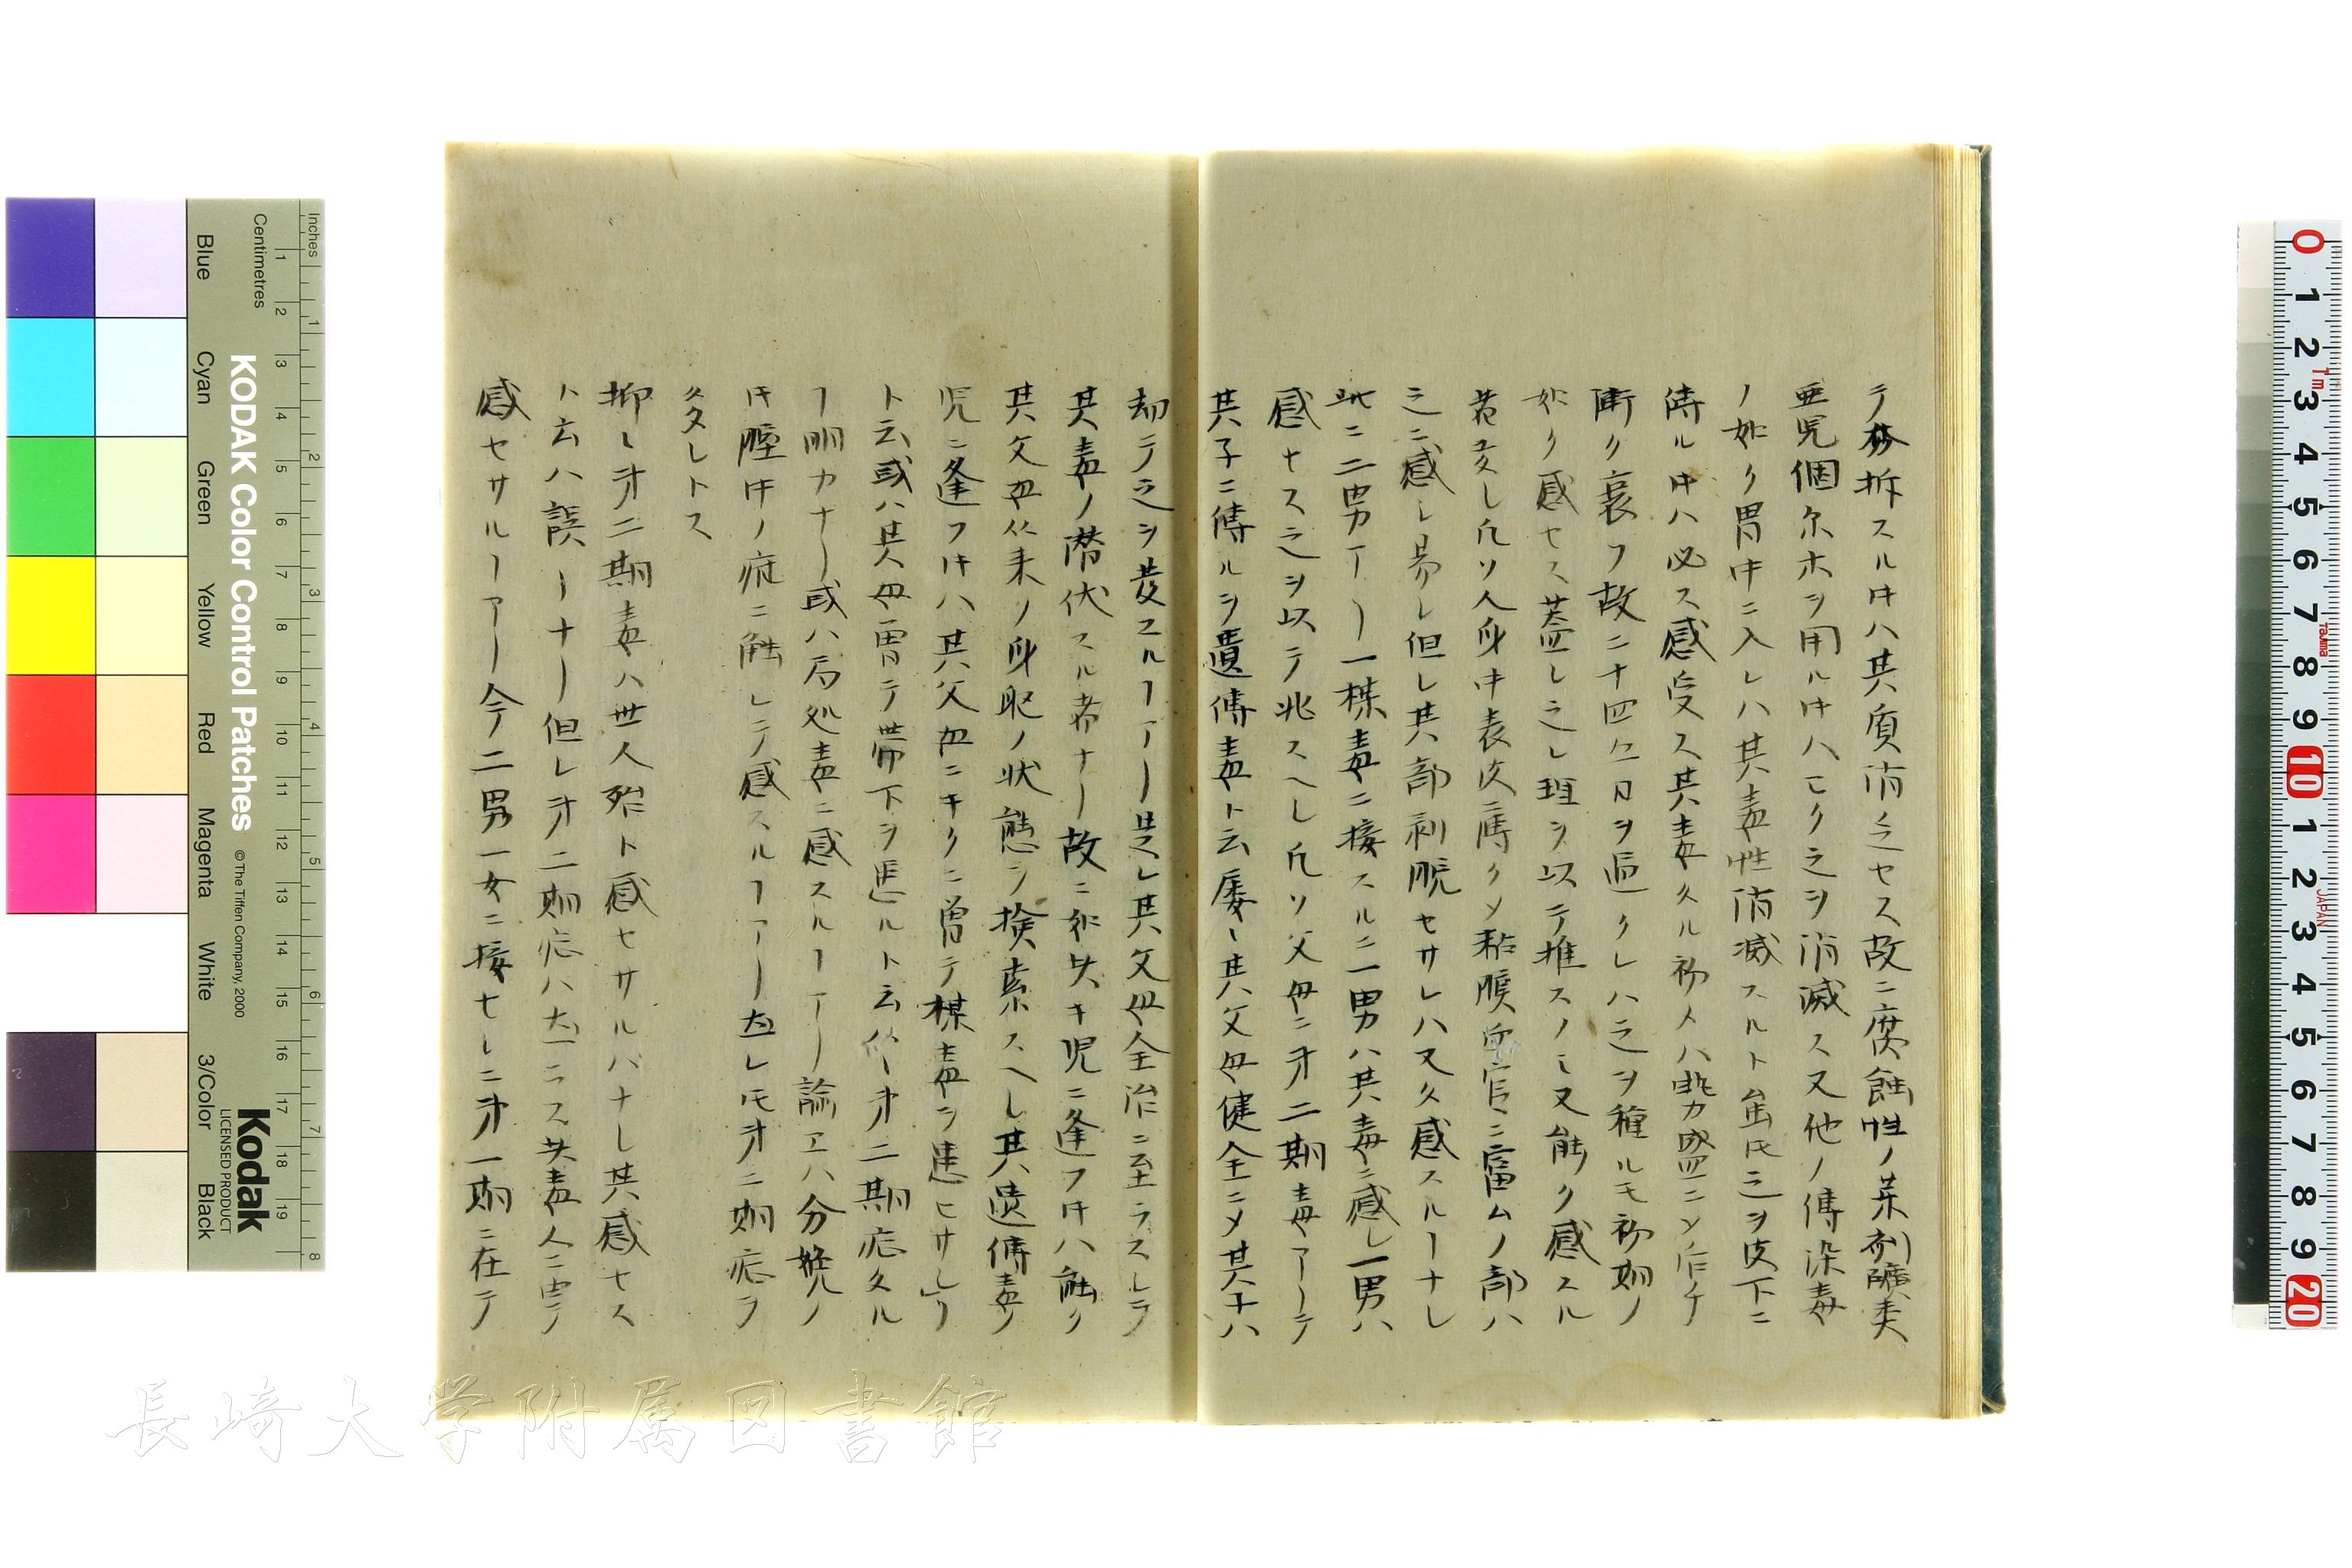 テ分析スルヰハ其質消亡セス故ニ腐蝕性ノ薬剤礦夫
亜児個尓ホヲ用ルヰハヒク之ヲ消滅ス又他ノ傳染毒
ノ如ク胃中ニ入レハ其毒性消滅スルト虽𪜈之ヲ皮下ニ
傳ル中ハ必ス感受ス其毒タル初メハ勢力盛ニ〆后チ
漸ク衰フ故ニ十四五日ヲ過クレハ之ヲ種ルモ初期ノ
如ク感セス蓋し之レ理ヲ以テ推スノミ又能ク感スル
者多し凡ソ人身中表皮薄ク〆粘膜血管ニ富ムノ部ハ
之ニ感し易し但し其部剥脱セサレハ又タ感スルヿナし
此ニ二男アリ一楳毒ニ接スルニ一男ハ其毒ニ感し一男ハ
感ナス之ヲ以テ兆スヘし凡ソ父母ニ才二期毒アリテ
其子ニ傳ルヲ遺傳毒ト云屡〻其父母健全ニ〆其子ハ
却テ之ヲ発スルヿアリ是レ其父母全治ニ至ラスシテ
其毒ノ潜伏スル者ナリ故ニ如此キ児ニ逢フヰハ能ク
其父母従来ノ身躰ノ状態ヲ捜索スヘし其遺傳毒ノ
児ニ逢フヰハ其父母ニキクニ曽テ楳毒ヲ患ヒサレリ
ト云或ハ其母曽テ帯下ヲ患ルト云​ 才二期症タル
ヿ明カナリ或ハ局処毒ニ感スルヿアリ諭エハ分娩ノ
ヰ膣中ノ症ニ触レテ感スルヿアリ​ 才二期症ヲ
​タレトス
抑レ才二期毒ハ世人殆ト感セサルバナし其感セス
ト云ハ誤リナリ但レ才二期症ハ​ 其毒人ニ​
感セサルヿアリ今二男一女ニ接セしニ才一期ニ在テ
KODAK Color Control Patches
©The Tiffen Company, 2000
Kodak
LICENSED PRODUCT
Inches
Centimetres
Blue
Cyan
Green
Yellow
Red
Magenta
White
3/Color
Black
長崎大学附属図書館